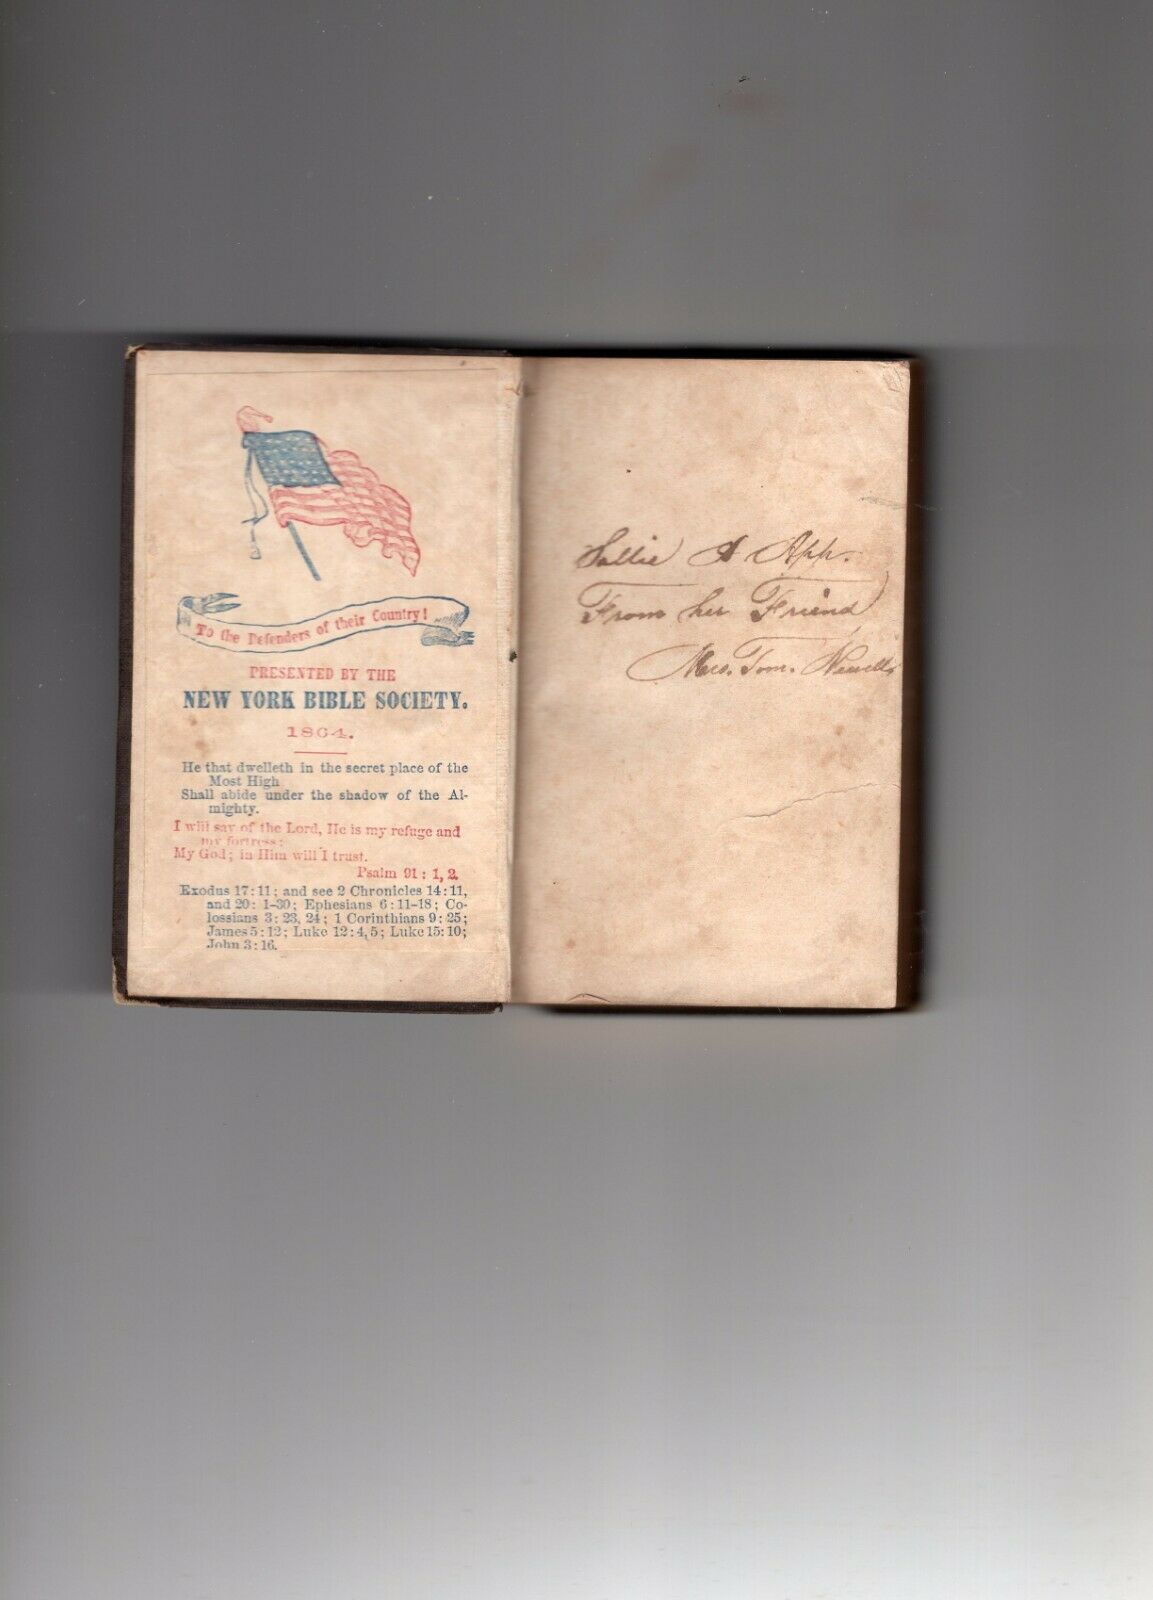 To the Defenders of their Country!
PRESENTED BY THE
NEW YORK BIBLE SOCIETY.
1864.
He that dwelleth in the secret place of the
Most High
Shall abide under the shadow of the Al-
mighty.
I will say of the Lord, He is my refuge and
my fortress:
My God; in Him will I trust.
Psalm 91: 1, 2.
Exodus 17:11; and see 2 Chronicles 14:11,
and 20: 1-30; Ephesians 6:11-18; Co-
lossians 3: 23, 24; 1 Corinthians 9: 25;
James 5: 12; Luke 12: 4, 5; Luke 15: 10;
John 3: 16.
Sallie A App.
From her Friend
Mrs. Tom. Newell